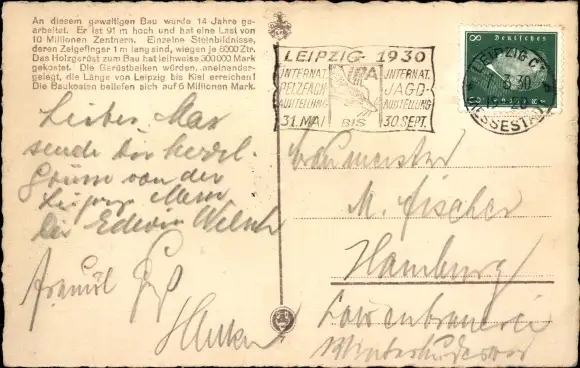 An diesem gewaltigen Bau wurde 14 Jahre ge-
arbeitet. Er ist 91 m hoch und hat eine Last von
10 Millionen Zentnern. Einzelne Steinbildnisse,
deren Zeigefinger 1 m lang sind, wiegen je 8000 Ztr.
Das Holzgerüst zum Bau hat leihweise 300000 Mark
gekostet. Die Gerüstbalken würden, aneinander-
gelegt, die Länge von Leipzig bis Kiel erreichen!
Die Baukosten beliefen sich auf 6 Millionen Mark.
LEIPZIG 1930
INTERNAT. IPA INTERNAT.
PELZFACH- JAGD-
AUSSTELLUNG AUSSTELLUNG
31. MAI BIS 30. SEPT.
8 Deutsches 8
LEIPZIG C
3.30
MESSESTADT
Lieber Max
sende dir herzl.
Grüsse von der
Leipzig Messe
Dir Edwin
Baumeister
M. Fischer
Hamburg
Löwenbrauerei
Winterhuderweg